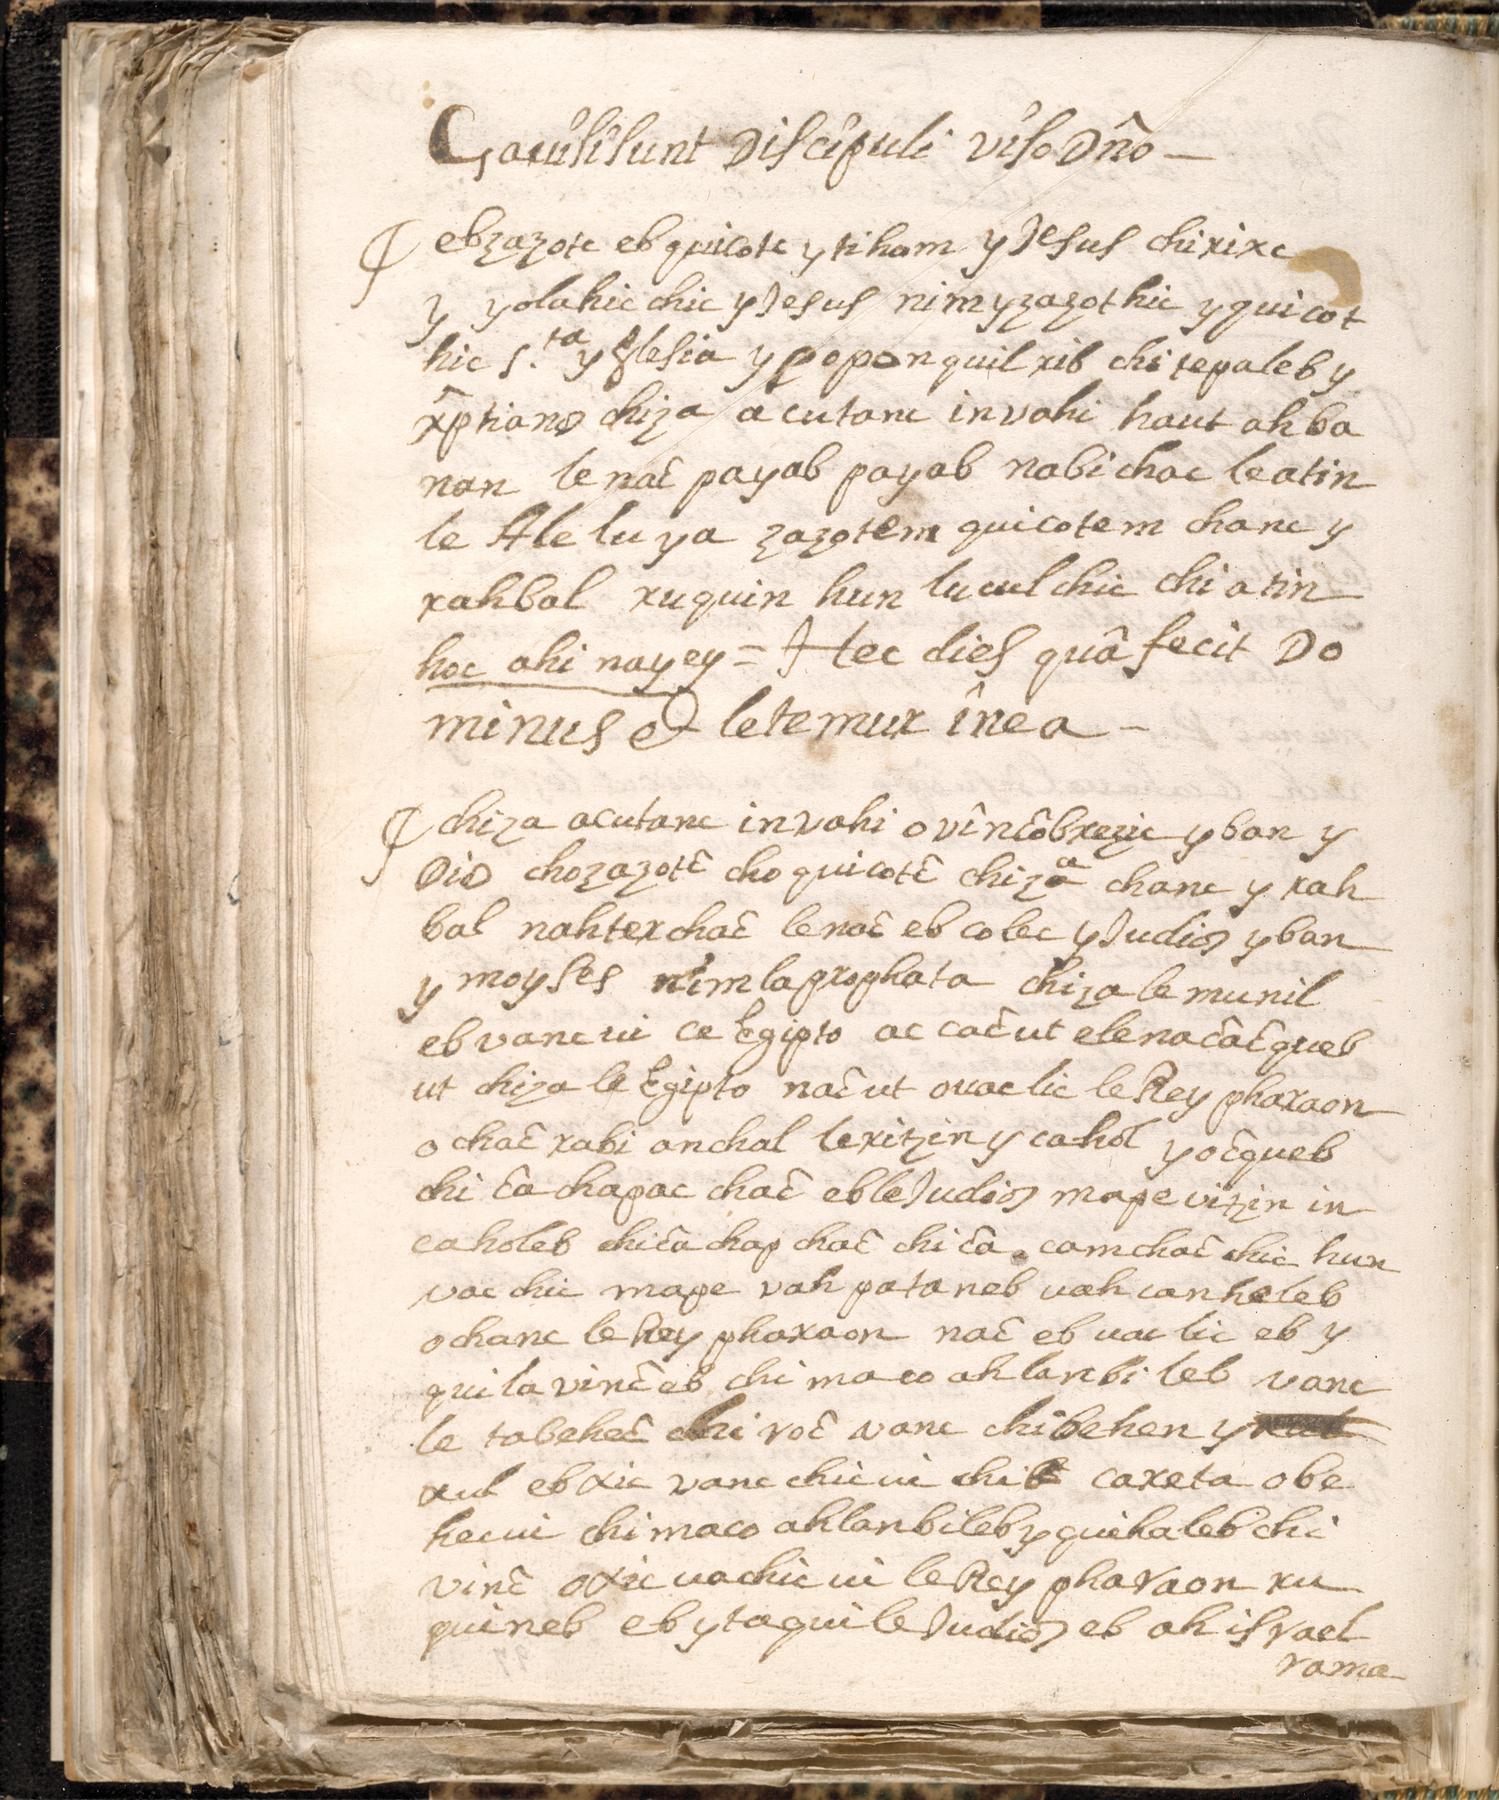 Gauisi sunt Discipuli viso Dn̂o —
ebzazote eb quicote y tiham y Jesus chirixc
y yolahic chic y Jesus nim yzazot hic y quicot
hic S.ta yglesia y poponquil rib chi tepaleb y
xp̂tiano chiza acutanc invahi haut ahba
nan le nac̄ payab payab nabi chac le atin
le Ale lu ya zazotem quicotem chanc y
rahbal xuquin hun lucul chic chi atin
hoc ahi nayey = Hec dies quâ fecit Do
minus et letemur în ea —
chiza acutanc invahi o vin̂c̄ôbrezic y ban y
Dio chozazotc̄ cho quicotc̄ chiza chanc y rah
bal nahterchac̄ lenac̄ eb colec y Judio y ban
y moyses nim la propheta chiza le munil
eb vanc ui ce Egipto ac cac̄ ut elenac̄ ac̄queb
ut chiza le Egipto nac̄ ut ovac lic le Rey pharaon
o chac̄ rabi anchal lexitzin y cahol y oc̄queb
chi c̄a chapac chac̄ eb le Judio mape vitzin in
caholeb chi c̄a chap chac̄ chi c̄a camchac̄ chic hun
vac chic mape vah pataneb vah canheleb
o chanc le Rey pharaon nac̄ eb uac lic eb y
quila vinc̄ eb chi maco ahlanbi leb vanc
le tabehec̄ chi roc̄ vanc chi behen y
xul eb xic vanc chic ui chi careta o be
hecui chi maco ahlanbileb y quihaleb chi
vinc̄ oxic uachic ui le Rey pharaon xu
quineb eb y taqui le Judio eb ah israel
rama